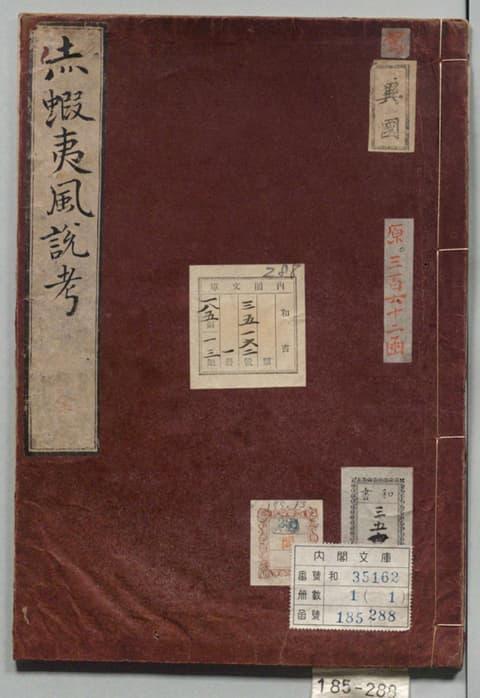 赤蝦夷風説考
全
異國
原三百六十二函
288
内閣文庫
和書
三五一六二號
一冊
一八五函
一三架
185 13
和書
三五
内閣文庫
番號 和 35162
冊數 1 ( 1 )
函號 185 288
185-288